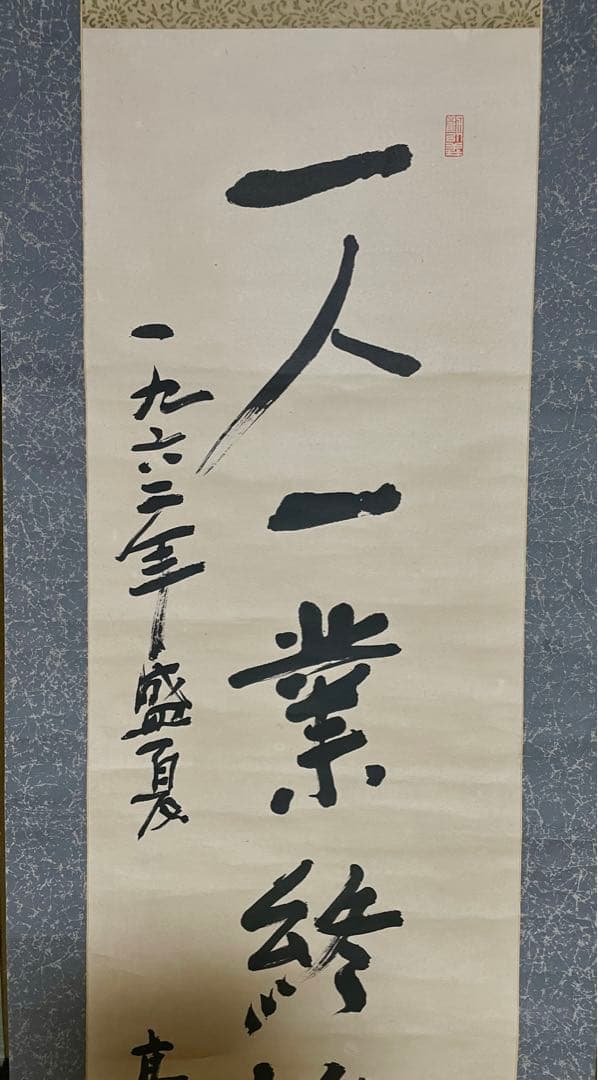 一人一業終
一九六二年盛夏